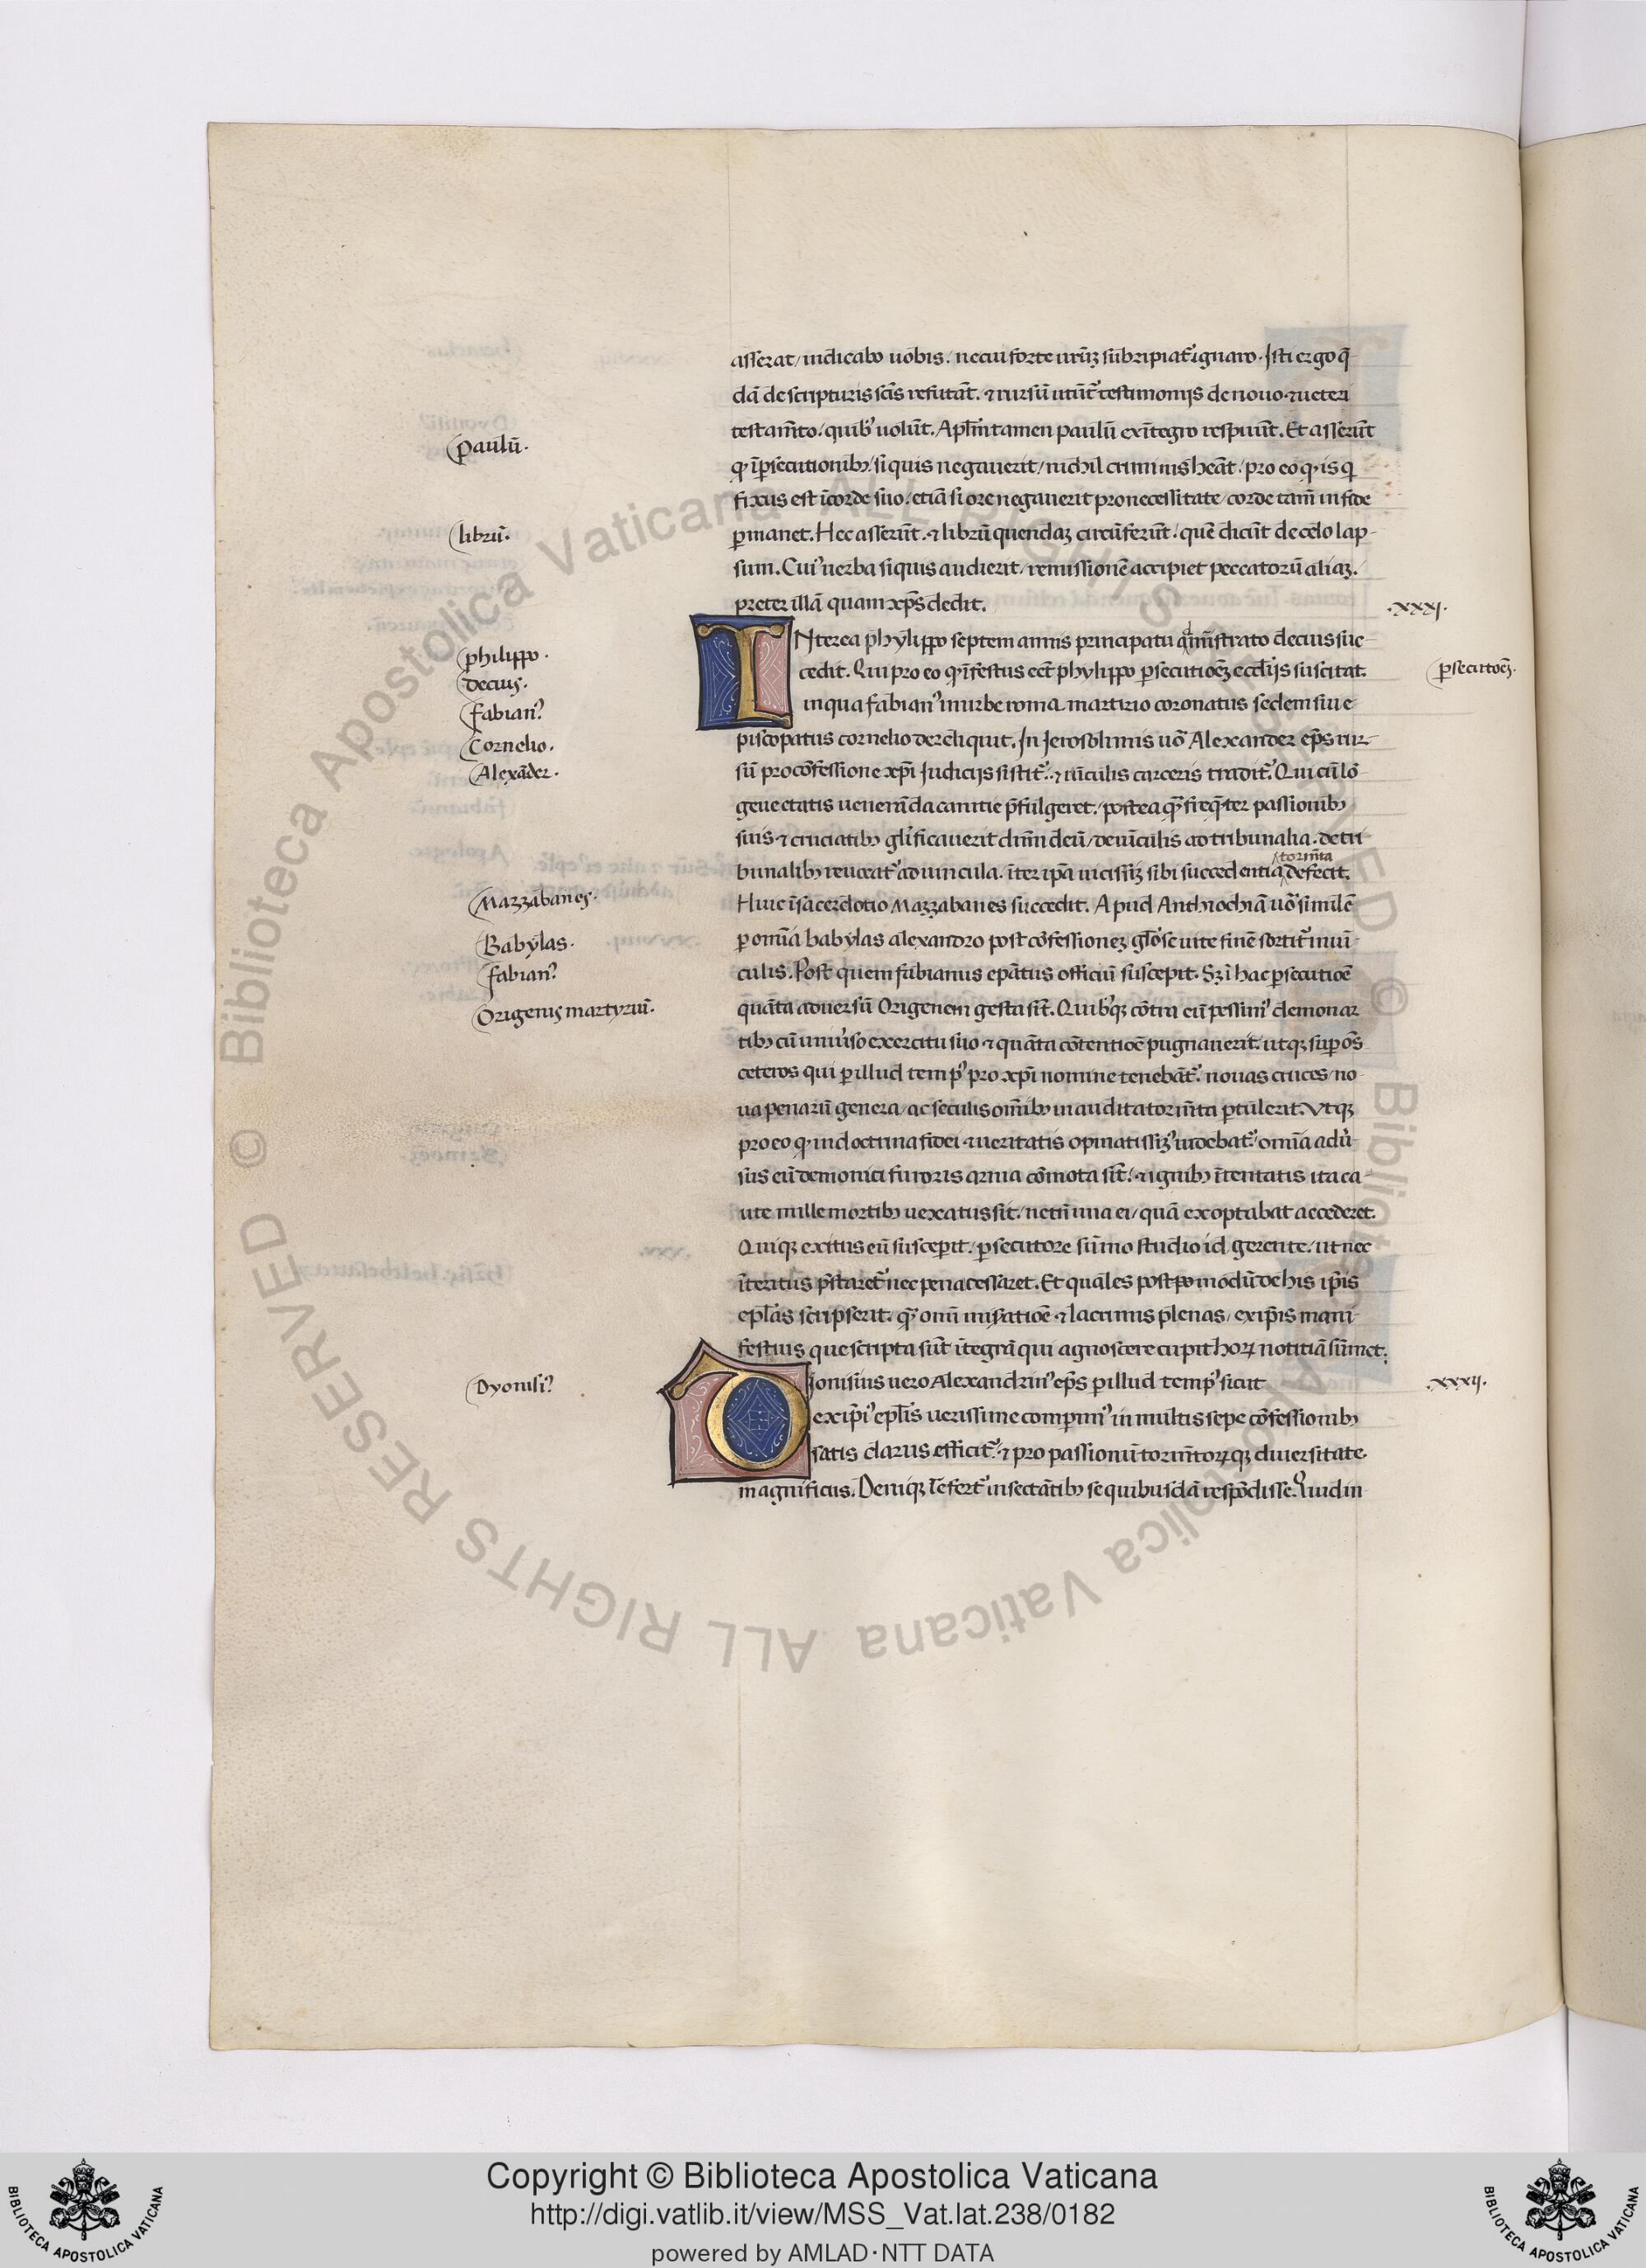 asserat / indicabo uobis. necui forte uirꝫ subripiat᷑ ignaro. Isti ergo q̄
dā de scripturis scīs refutāt. ⁊ rursū utūt᷑ testimonijs de nouo ⁊ ueteri
testam̄to. quibꝰ uolūt. Apl̄m tamen paulū exītegro respuūt. Et asserūt
ꝙ īꝑsecutionibꝫ si quis negauerit / nichil criminis heāt. pro eo ꝙ is q
fixus est īcorde suo. etiā si ore negauerit pro necessitate / corde tam̄ in fide
ꝑmanet. Hec asserūt. ⁊ librū quendaꝫ circūferūt. quē dicūt de celo lap-
sum. Cuiꝰ uerba siquis audierit / remissionē accipiet peccatorū aliaꝫ.
preter illā quam xp̄s dedit.
INterea phylippo septem annis principatu am̄istrato decius suc-
cedit. Qui pro eo ꝙ īfestus eēt phylippo ꝑsecutioēꝫ eccl̄ijs suscitat.
inqua fabianꝰ inurbe roma martirio coronatus sedem sui e-
piscopatus cornelio dereliquit. In Jerosolimis uō Alexander ep̄s rur-
sū pro cōfessione xp̄i Judicijs sistit᷑. ⁊ uīculis carceris tradit᷑. Qui cū lō
geue etatis ueneranda canitie p̄fulgeret. postea qꝫ freq̄ter passionibꝫ
suis ⁊ cruciatibꝫ gl̄ificauerit dn̄m deū / deuīculis ad tribunalia. de tri
torm̄ta
bunalibꝫ reuocat᷑ ad uincula. īter ip̄a uicissiꝫ sibi succedentia defecit.
Huic īsacerdotio Mazzabanes succedit. Apud Anthiochiā uō similē
ꝑ omīa babylas alexandro post cōfessioneꝫ glōse uite finē sortit᷑ inuī
culis. Post quem fabianus ep̄atus officiū suscepit. Sꝫ ī hac ꝑsecutioē
quāta aduersū Origenem gesta sīt. Quibꝰqꝫ cōtra eū pessimꝰ demonar
tibꝫ cū uniuꝰso exercitu suo ⁊ quāta cōtentioē pugnauerit. utqꝫ suꝑ ōs
ceteros qui ꝑ illud tempꝰ pro xp̄i nomine tenebāt᷑. nouas cruces / no
ua penarū genera / ac seculis om̄ibꝫ inaudita torm̄ta ꝑtulerit. Vtqꝫ
pro eo ꝙ in doctrina fidei ⁊ ueritatis opinatissiꝰ uidebat᷑. omīa aduꝰ
sus eū demonici furoris arma cōmota sīt. ⁊ ignibꝫ ītentatis ita ca-
ute mille mortibꝫ uexatus sit. ne tn̄ una ei / quā exoptabat accederet.
Quiqꝫ exitus eū susceperit. ꝑsecutore sūmo studio id gerente. ut nec
īteritus p̄staret᷑ nec pena cessaret. Et quales post modū de his ip̄is
epl̄as scripserit. qꝫ omī miꝰatioē ⁊ lacrimis plenas / ex ip̄is mani-
festius que scripta sūt ītegrā qui agnoscere cupit horꝝ notitiā sūmet.
DJonisius uero Alexandrinꝰ ep̄s ꝑ illud tempꝰ sicut
ex ip̄iꝰ epl̄is uerissime comꝑimꝰ in multis sepe cōfessionibꝫ
satis clarus efficit᷑. ⁊ pro passionū torm̄torꝝqꝫ diuersitate.
magnificus. Deniqꝫ refert᷑ insectātibꝫ se quibusdā respōdisse. Quid in
Paulū.
librū.
philippo.
decius.
Fabianꝰ
Cornelio.
Alexāder.
Mazzabanes.
Babylas.
Fabianꝰ
Origenis martyriū.
Dyonisiꝰ
.xxxj.
ꝑsecutioēꝫ.
.xxxij.
Copyright © Biblioteca Apostolica Vaticana
http://digi.vatlib.it/view/MSS_Vat.lat.238/0182
powered by AMLAD·NTT DATA
BIBLIOTECA APOSTOLICA VATICANA
BIBLIOTECA APOSTOLICA VATICANA
© Biblioteca Apostolica Vaticana ALL RIGHTS RESERVED © Biblioteca Apostolica Vaticana ALL RIGHTS RESERVED